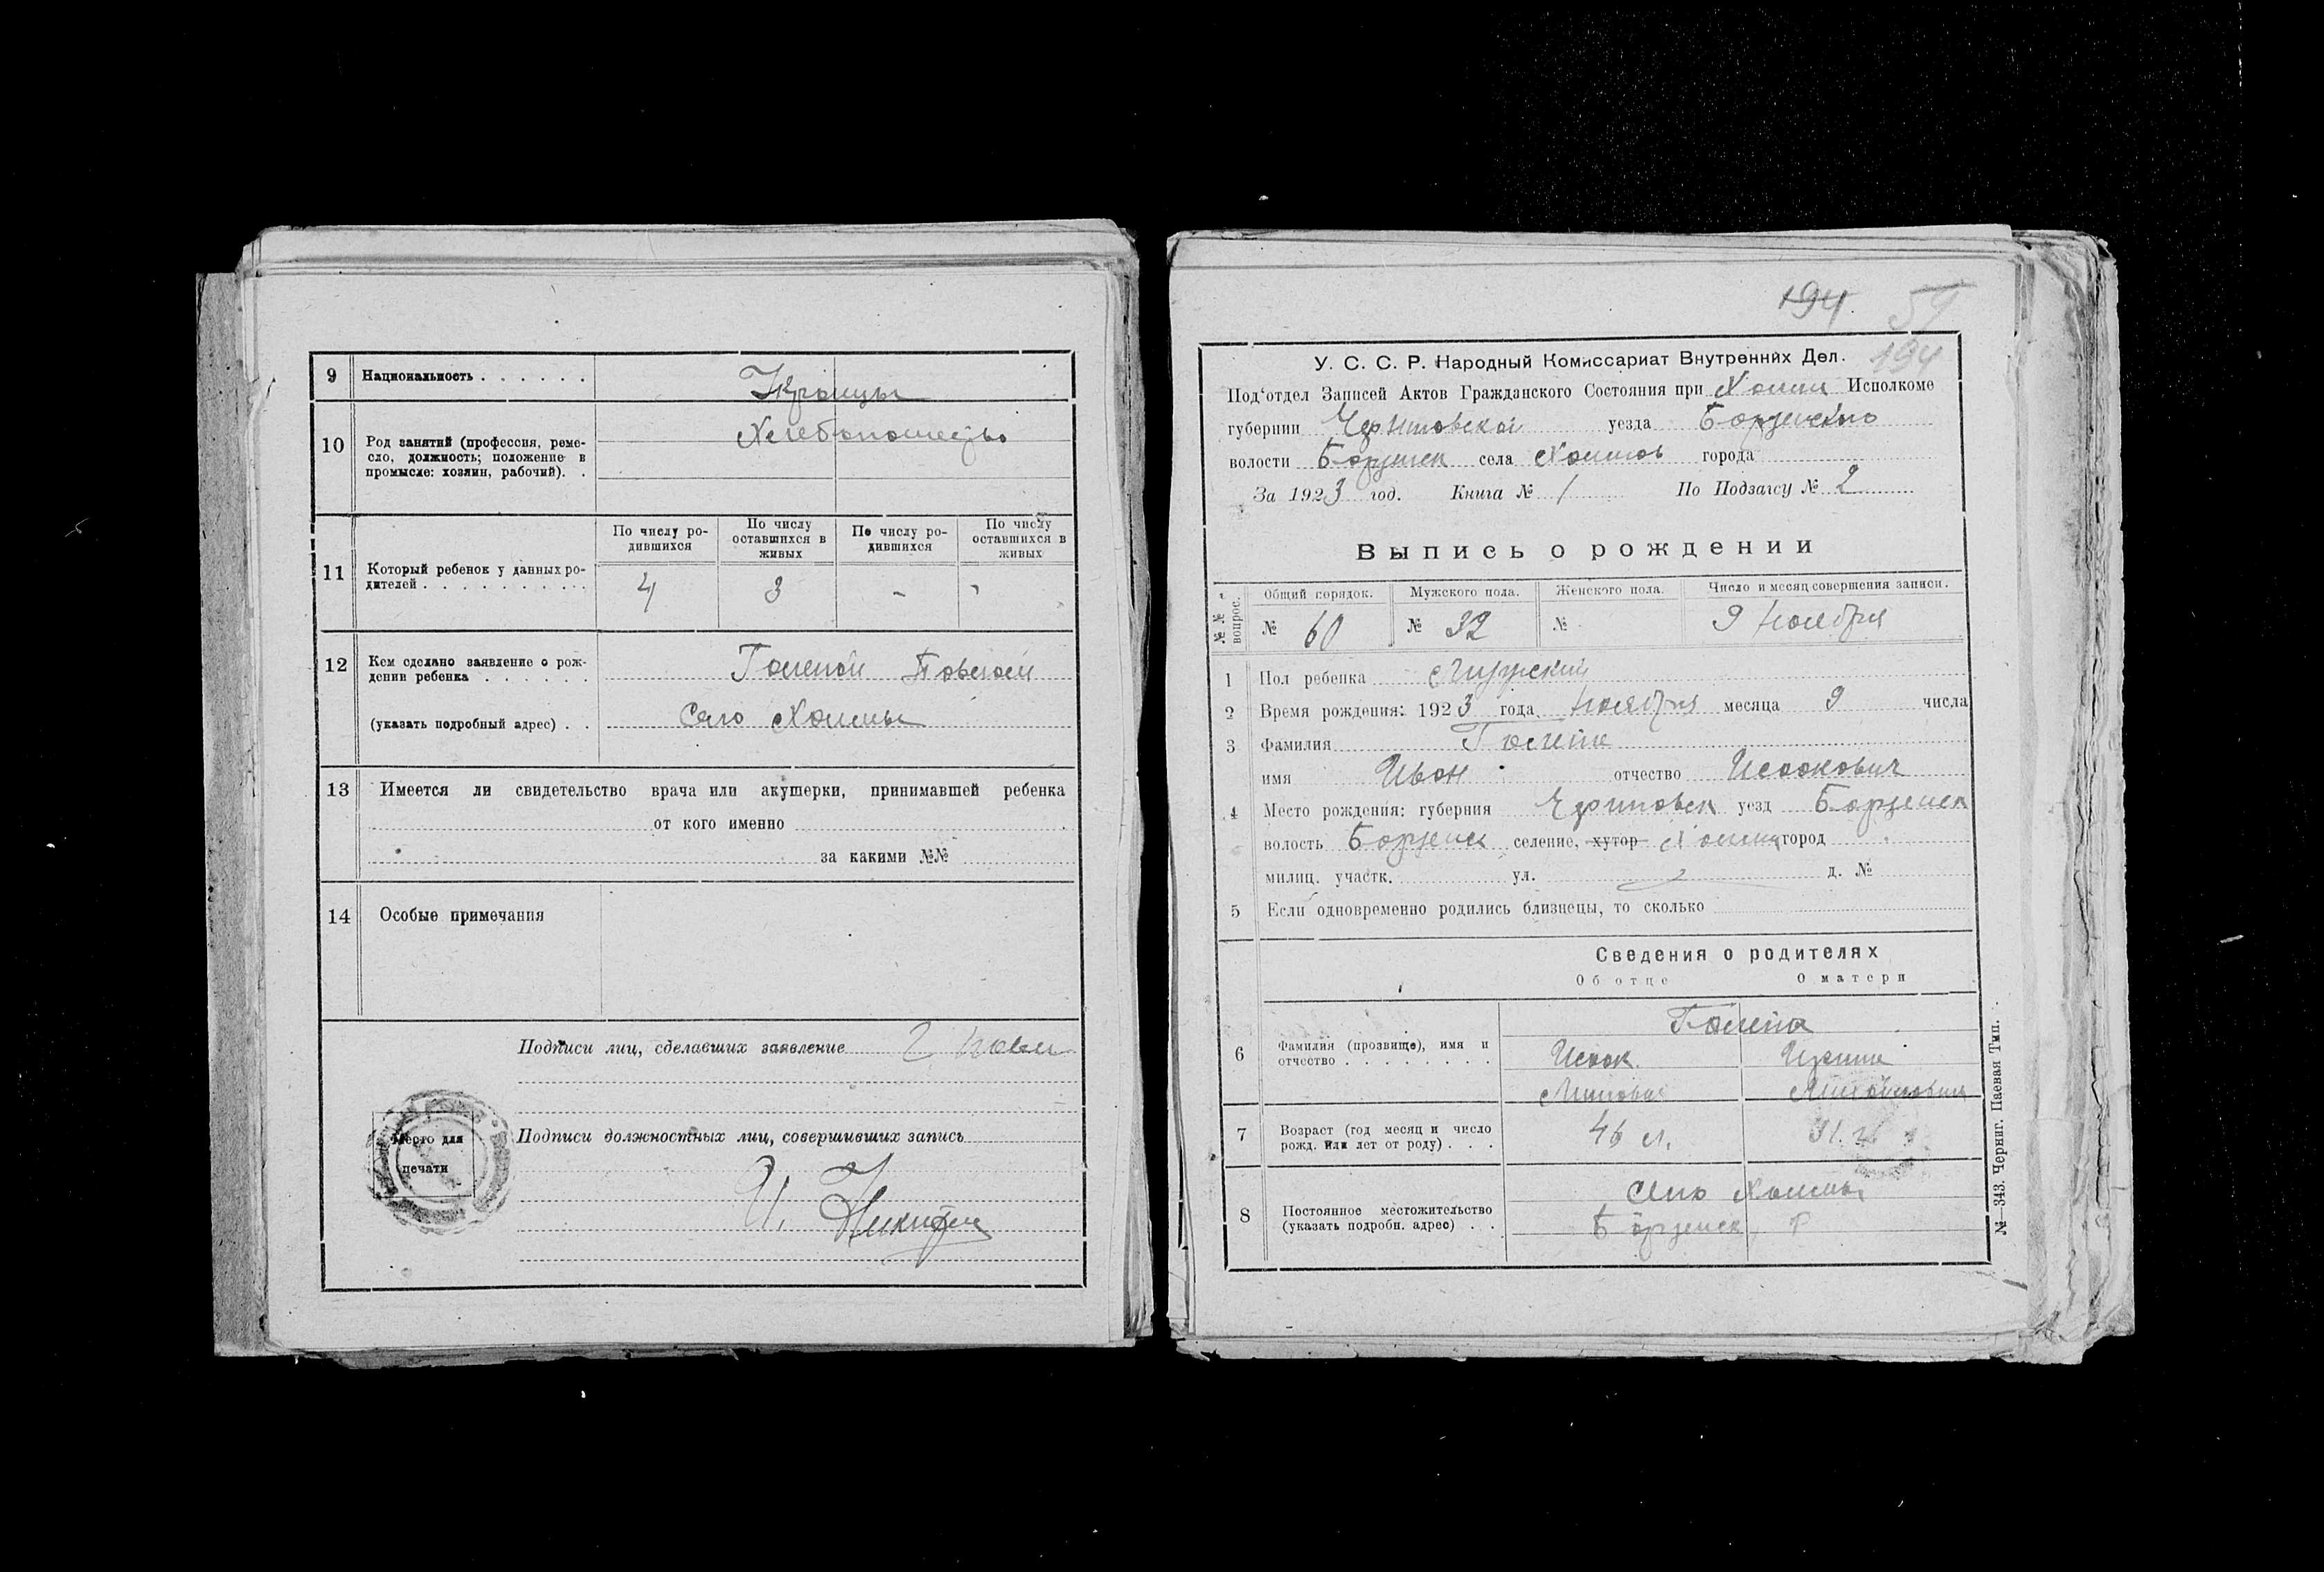 9 Национальность . . . . . .
Украинцы
10 Род занятий (профессия, реме-
сло, должность; положение в
промысле: хозяин, рабочий). .
Хлебопашество
11 Который ребенок у данных ро-
дителей . . . . . . . . . .
По числу ро-
дившихся
По числу
оставшихся в
живых
По числу ро-
дившихся
По числу
оставшихся в
живых
4 3 - -
12 Кем сделано заявление о рож-
дении ребенка . . . . . .
(указать подробный адрес) . .
Село Холмы
13 Имеется ли свидетельство врача или акушерки, принимавшей ребенка
от кого именно
за какими №№
14 Особые примечания
Подписи лиц, сделавших заявление
Место для
печати
Подписи должностных лиц, совершивших запись
194 59
194
У. С. С. Р. Народный Комиссариат Внутренних Дел.
Под‘отдел Записей Актов Гражданского Состояния при Холми Исполкоме
губернии Черниговской уезда Борзенского
волости Борзенск села Холмов города
За 1923 год. Книга № 1 По Подзагсу № 2
Выпись о рождении
№№ вопрос.
Общий порядок. Мужского пола. Женского пола. Число и месяц совершения записи.
№ 60 № 32 № 9 Ноября
1 Пол ребенка Мужский
2 Время рождения: 1923 года Ноября месяца 9 числа
3 Фамилия
имя Иван отчество Исаакович
4 Место рождения: губерния Черниговск уезд Борзенск
волость Борзенск селение, хутор Холми город
милиц. участк. ул. д. №
5 Если одновременно родились близнецы, то сколько
Сведения о родителях
Об отце О матери
6 Фамилия (прозвище), имя и
отчество . . . . . . . .
Исаак
7 Возраст (год месяц и число
рожд. или лет от роду) . . .
46 л. 31 г.
8 Постоянное местожительство
(указать подробн. адрес) . .
Село Холмы
Борзенск
№—343. Черниг. Паевая Тип.